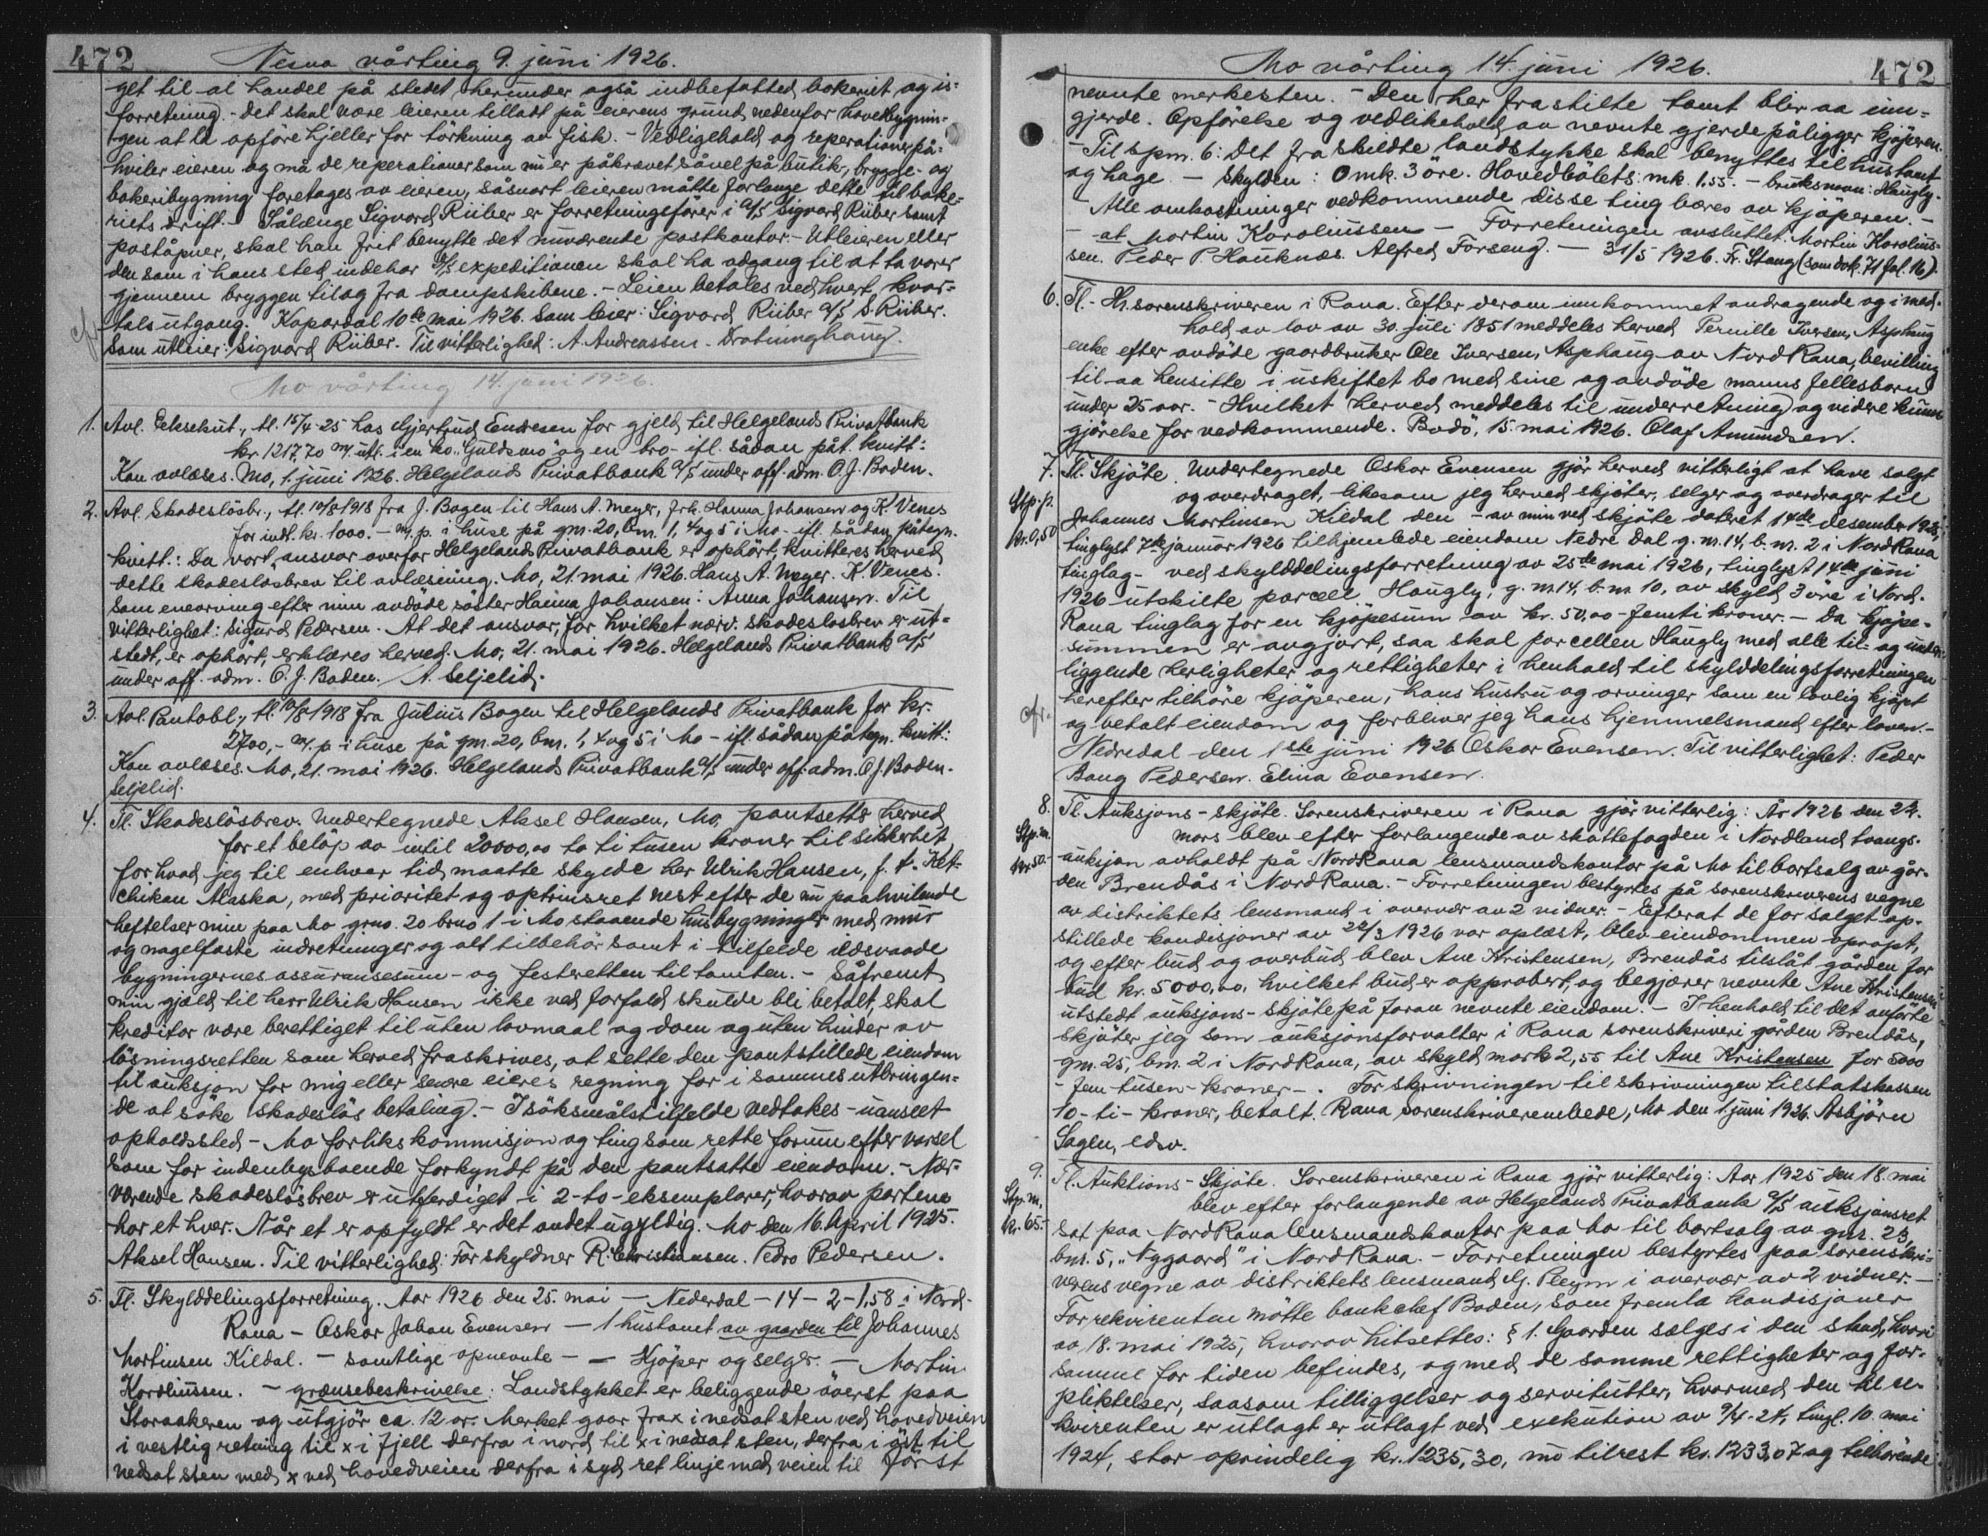 472
Nesna vårting 9. juni 1926.
get til al handel på stedet, herunder også indbefattet bakeriet og is-
forretning. - Det skal være leieren tilladt på eierens grund nedenfor hovedbygnin-
gen at la opføre hjeller for tørkning av fisk. - Vedligehold og reperationer på-
hviler eieren og må de reperationer som nu er påkrævet såvel på butik-, brygge- og
bakeribygning foretages av eieren, såsnart leieren måtte forlange dette til bake-
riets drift. - Sålænge Sigvard Riiber er forretningsfører i A/S Sigvard Riiber samt
poståpner, skal han frit benytte det nuværende postkontor. - Utleieren eller
den som i hans sted indehar D/S expeditionen skal ha adgang til at ta varer
gjennem bryggen til og fra dampskibene. - Leien betales ved hvert kvar-
tals utgang. Kopardal 10de mai 1926. Som leier: Sigvard Riiber A/S S. Riiber.
Som utleier: Sigvard Riiber. Til vitterlighed: A. Andreassen. Drotninghaug.
Mo vårting 14. juni 1926.
1. Avl. Eeksekut., tl. 15/4-25 hos Hjertrud Endresen for gjeld til Helgelands Privatbank
kr. 1217,70 m/ utl. i en ko "Guldsmo" og en bro- ifl. sådan påt. kvitt:
Kan avlæses. Mo, 1. juni 1926. Helgelands Privatbank A/S under off. adm. O. J. Boden.
2. Avl. Skadesløsbr., tl. 10/8 1918 fra J. Bogen til Hans A. Meyer, frk. Hanna Johansen og K. Venes
for indt. kr. 1000.- m. p. i huse på gm. 20, bm. 1, 4 og 5 i Mo - ifl. sådan påtegn.
kvitt.: Da vort ansvar overfor Helgelands Privatbank er ophørt, kvitteres herved
dette skadesløsbrev til avlæsning. Mo, 21. mai 1926. Hans A. Meyer. K. Venes.
Som enearving efter min avdøde søster Hanna Johansen: Anna Johansen. Til
vitterlighet: Sigurd Pedersen. At det ansvar, for hvilket nærv. skadesløsbrev er ut-
stedt, er ophørt, erklæres herved. Mo, 21. mai 1926. Helgelands Privatbank A/S
under off. adm. O. J. Boden. A. Seljelid.
3. Avl. Pantobl., tl. 10/8 1918 fra Julius Bogen til Helgelands Privatbank for kr.
2700,- m. p. i huse på gm. 20, bm. 1, 4 og 5 i Mo - ifl. sådan påtegn. kvitt:
Kan avlæses. Mo, 21. mai 1926. Helgelands Privatbank A/S under off. adm. O. J. Boden.
Seljelid.
4. Tl. Skadesløsbrev. Undertegnede Aksel Hansen, Mo, pantsetter herved
for et beløp av intil 20000,00 to ti tusen kroner til sikkerhet
for hvad jeg til enhver tid maatte skylde her Ulrik Hansen, f. t. Ket-
chikan Alaska, med prioritet og optrinsret nest efter de nu paahvilende
heftelser min paa Mo grno. 20 brno 1 i Mo staaende husbygninger med mur
og nagelfaste indretninger og alt tilbehør samt i tilfelde ildsvaade
bygningernes assuransesum - og festeretten til tomten. - Såfremt
min gjæld til herr Ulrik Hansen ikke ved forfald skulde bli betalt, skal
kreditor være berettiget til uten lovmaal og dom og uten hinder av
løsningsretten som herved fraskrives, at sette den pantstillede eiendom
til auksjon for mig eller senere eieres regning for i sammes utbringen-
de at søke skadesløs betaling. - I søksmålstilfelde vedtakes - uanseet
opholdssted - Mo forlikskommisjon og ting som rette forum efter varsel
som for indenbys boende forkyndt på den pantsatte eiendom. - Nær-
værende skadesløsbrev er utferdiget i 2 - to - eksemplarer, hvorav partene
har et hver. Når et er opfyldt er det andet ugyldig. Mo den 16. April 1925.
Aksel Hansen. Til vitterlighed: For skyldner R. Christiansen. Pedro Pedersen.
5. Tl. Skylddelingsforretning. Aar 1926 den 25. mai - Nederdal - 14 - 2 - 1,58 i Nord-
Rana - Oskar Johan Evensen - 1 hustomt av gaarden til Johannes
Martinsen Kildal. - samtlige opnevnte - - Kjøper og selger. - Martin
Karoliussen. - grænsebeskrivelse: Landstykket er beliggende øverst paa
Storaakeren og utgjør ca. 12 ar. Merket gaar fra x i nedsat sten ved hovedveien
i vestlig retning til x i fjell derfra i nord til x i nedsat sten, derfra i øst til
nedsat sten med x ved hovedveien derfra i syd ret linje med veien til først
Mo vårting 14. juni 1926.
472
nevnte merkesten. - Den her frastilte tomt blir aa inn-
gjerde. Opførelse og vedlikehold av nevnte gjerde påligger kjøperen.
- Til spm. 6: Det fraskildte landstykke skal benyttes til hustomt
og hage. - Skylden: 0 mk. 3 øre. Hovedbølets: mk. 1,55. - bruksnavn: Haugly.
- Alle omkostninger vedkommende disse ting bæres av kjøperen. -
- at Martin Karoliussen - Forretningen avsluttet. Martin Karolius-
sen. Peder P. Hauknæs. Alfred Forseng. - 31/5 1926. Fr. Stang (som dok. 71 fol. 16).
6. Tl. - Hr. sorenskriveren i Rana. Efter derom innkommet andragende og i med-
hold av lov av 30. juli 1851 meddeles herved Pernille Iversen, Asphaug
enke efter avdøde gaardbruker Ole Iversen, Asphaug av Nord Rana, bevilling
til aa hensitte i uskiftet bo med sine og avdøde manns fellesbarn
under 25 aar. - Hvilket herved meddeles til underretning og videre kunn-
gjørelse for vedkommende. Bodø, 15. mai 1926. Olaf Amundsen.
7. Tl. Skjøte. Undertegnede Oskar Evensen gjør herved vitterligt at have solgt
Stp. p. kr. 0,50
og overdraget, likesom jeg herved skjøter, selger og overdrager til
Johannes Martinsen Kildal den - av min ved skjøte dateret 14de desember 1925,
tinglyst 7de januar 1926 tilhjemlede eiendom Nedre Dal g. m. 14, b. m. 2 i Nord Rana
tinglag - ved skylddelingsforretning av 25de mai 1926, tinglyst 14de juni
1926 utskilte parcell Haugly, g. m. 14, b. m. 10, av skyld 3 øre i Nord-
Rana tinglag for en kjøpesum av kr. 50,00 - femti kroner. - Da kjøpe-
summen er avgjort, saa skal parcellen Haugly med alle til- og under-
liggende herligheter og rettigheter i henhold til skylddelingsforretningen
herefter tilhøre kjøperen, hans hustru og arvinger som en lovlig kjøpt
og betalt eiendom og forbliver jeg hans hjemmelsmand efter loven. -
Nedredal den 1ste juni 1926 Oskar Evensen. Til vitterlighet: Peder
Baug Pedersen. Elina Evensen.
8. Tl. Auksjons-skjøte. Sorenskriveren i Rana gjør vitterlig: År 1926 den 22.
Stp. m. kr. 50.-
mars blev efter forlangende av skattefogden i Nordland tvangs-
auksjon avholdt på Nord Rana lensmandskontor på Mo til bortsalg av går-
den Brendås i Nord Rana. - Forretningen bestyrtes på sorenskriverens vegne
av distriktets lensmand i overvær av 2 vidner. - Efterat de for salget op-
stillede kondisjoner av 22/3 1926 var oplæst, blev eiendommen opropt,
og efter bud og overbud blev Ane Kristensen, Brendås tilslåt gården for
bud kr. 5000,00, hvilket bud er approbert, og begjærer nevnte Ane Kristensen
utstedt auksjons-skjøte på foran nevnte eiendom. - I henhold til det anførte
skjøter jeg som auksjonsforvalter i Rana sorenskriveri gården Brendås,
gm. 25, bm. 2 i Nord Rana, av skyld mark 2,55 til Ane Kristensen for 5000
- fem tusen - kroner - . For skrivningen tilskrivningen tilstatskassen
10 - ti - kroner, betalt. Rana sorenskriverembede, Mo den 1. juni 1926. Asbjørn
Sagen, edsv.
9. Tl. Auktions-Skjøte. Sorenskriveren i Rana gjør vitterlig: Aar 1925 den 18. mai
Stp. m. kr. 65.-
blev efter forlangende av Helgelands Privatbank A/S auksjonsret
sat paa Nord Rana lensmandskontor paa Mo til bortsalg av gnr. 23,
bnr. 5, "Nygaard" i Nord Rana. - Forretningen bestyrtes paa sorenskri-
verens vegne av distriktets lensmand G. Pleym i overvær av 2 vidner. -
For rekvirenten møtte bankchef Boden, som fremla kondisjoner
av 18. mai 1925, hvorav hitsettes: § 1. Gaarden sælges i den stand, hvori
samme for tiden befindes, og med de samme rettigheter og for-
pliktelser, saasom tilliggelser og servitutter, hvormed den til re-
kvirenten er utlagt er utlagt ved exekution av 9/4-24, tingl. 10. mai
1924, stor oprindelig kr. 1235,30, nu tilrest kr. 1233,07 og tilhørende